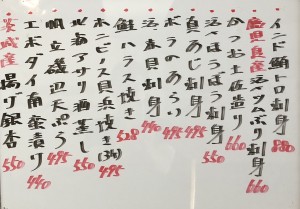 インド鮪トロ刺身 880
鹿児島産活〆カンパチ刺身 660
かつお土佐造り 660
真あじ刺身 550
ボラのあらい 495
活ホタテ貝刺身 440
鮭ハラス焼き 528
ホンビノス貝浜焼き(3ヶ)
北海アサリ酒蒸し 495
帆立磯辺天ぷら 495
エボダイ南蛮漬け 440
茨城産揚げ銀杏 550